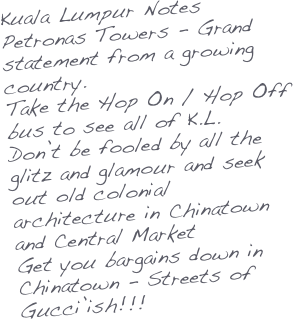 Kuala Lumpur Notes
Petronas Towers - Grand
statement from a growing
country.
Take the Hop On / Hop Off
bus to see all of K.L.
Don't be fooled by all the
glitz and glamour and seek
out old colonial
architecture in Chinatown
and Central Market
Get you bargains down in
Chinatown - Streets of
Gucci'ish!!!